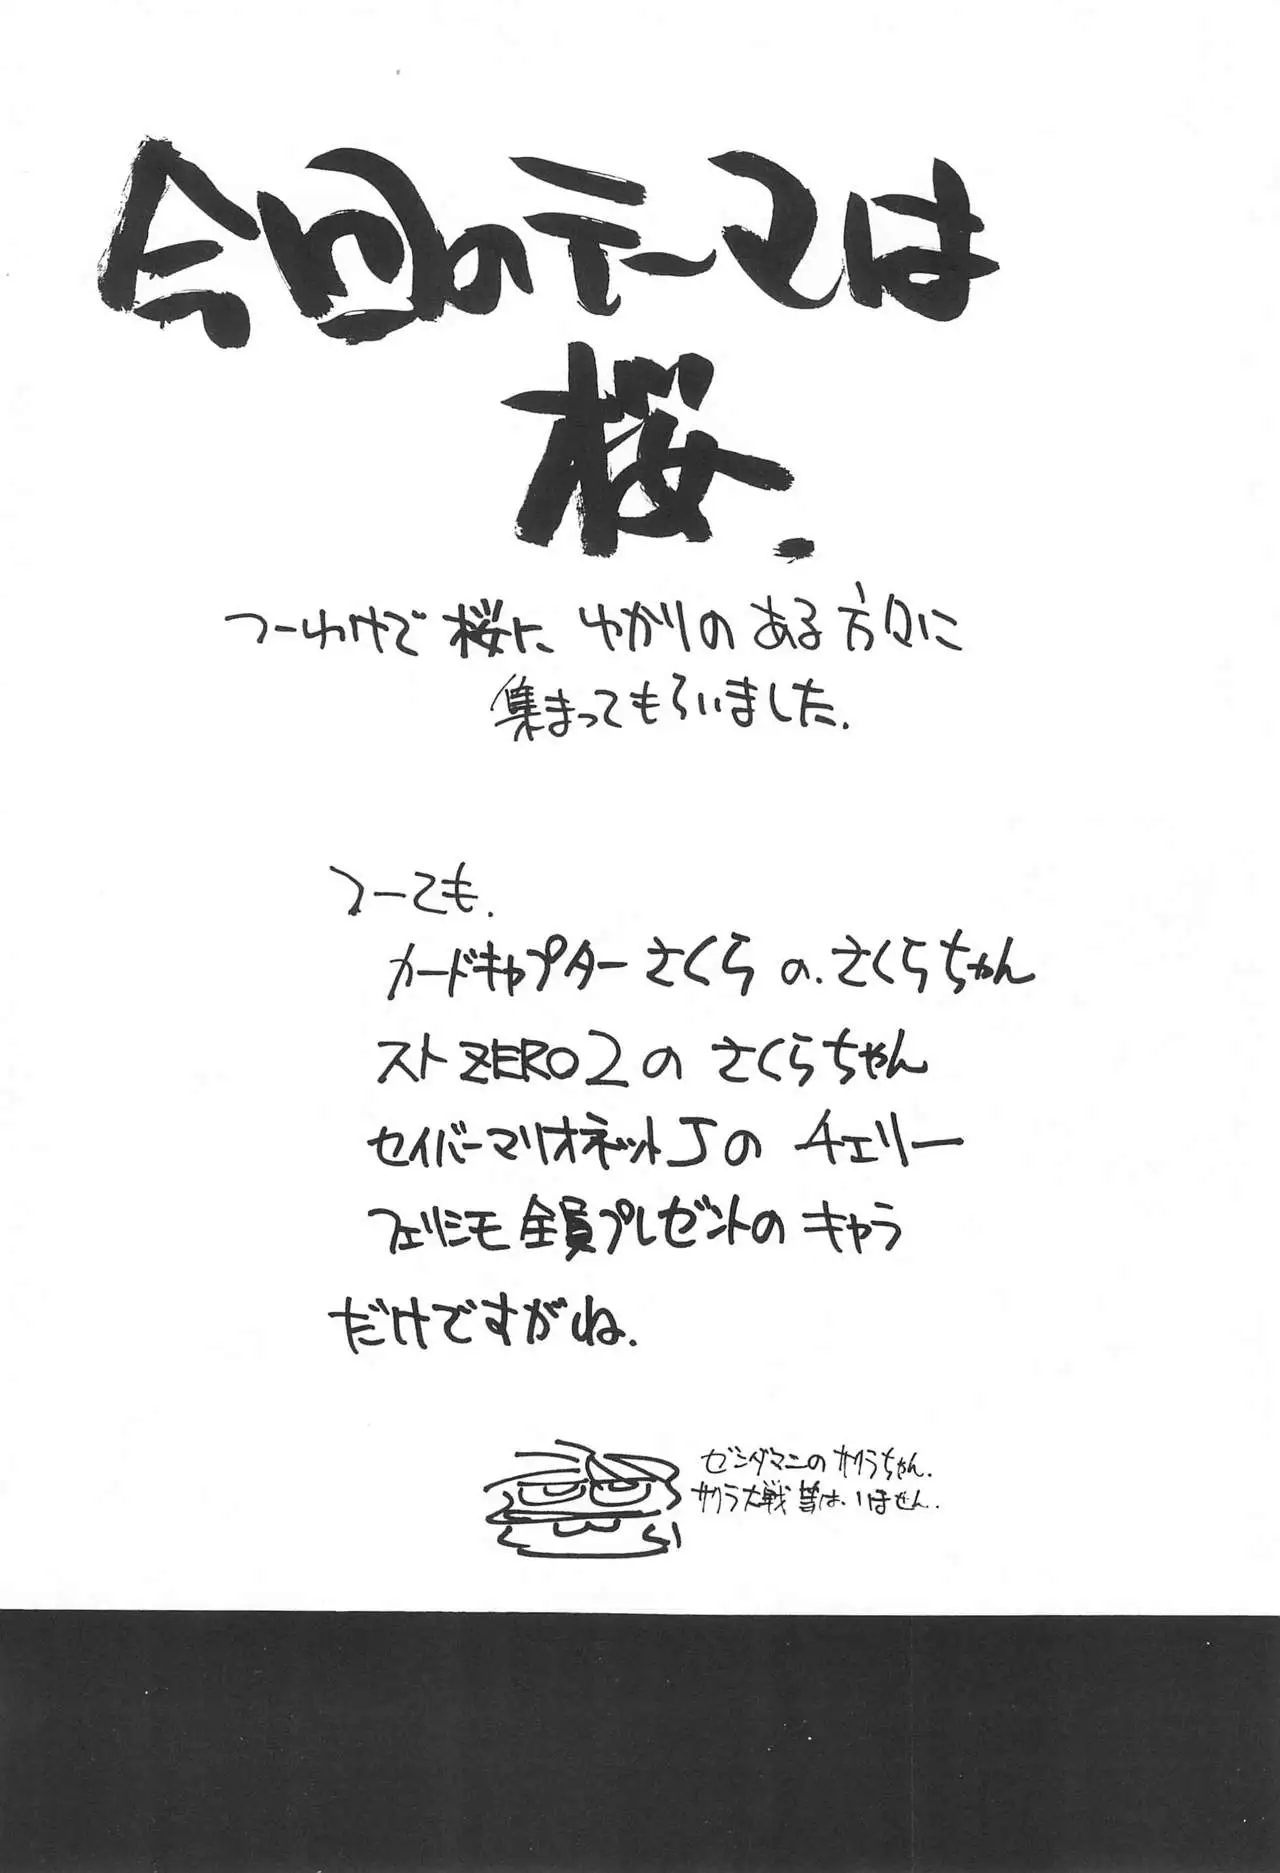 今回のテーマは
桜.
つーわけで桜に ゆかりのある方々に
集まってもらいました.
つーても.
カードキャプターさくらの.さくらちゃん
ストZERO2のさくらちゃん
セイバーマリオネットJのチェリー
フェリシモ全員プレゼントのキャラ
だけですがね.
ゼンダマンのサクラちゃん.
サクラ大戦等は.いません.